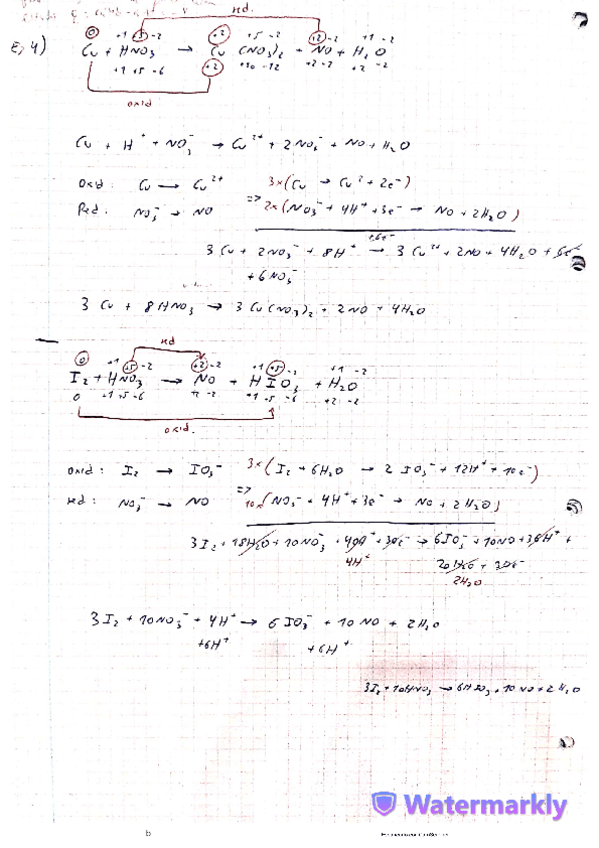 red.
0 +1 +5 -2 +2 +5 -2 +2 -2 +1 -2
E, 4) Cu + HNO₃ → Cu (NO₃)₂ + NO + H₂O
+1 +5 -6 +2 +10 -12 +2 -2 +2 -2
oxid
Cu + H⁺ + NO₃⁻ → Cu²⁺ + 2NO₃⁻ + NO + H₂O
Oxid: Cu → Cu²⁺ 3x(Cu → Cu² + 2e⁻)
Red: NO₃⁻ → NO => 2x(NO₃⁻ + 4H⁺ + 3e⁻ → NO + 2H₂O)
+6e⁻
3 Cu + 2NO₃⁻ + 8H⁺ → 3 Cu²⁺ + 2NO + 4H₂O + 6e⁻
+ 6NO₃⁻
3 Cu + 8HNO₃ → 3Cu(NO₃)₂ + 2NO + 4H₂O
red
0 +1 +5 -2 +2 -2 +1 +5 -2 +1 -2
I₂ + HNO₃ → NO + HIO₃ + H₂O
0 +1 +5 -6 +2 -2 +1 +5 -6 +2 -2
oxid.
oxid: I₂ → IO₃⁻ 3x(I₂ + 6H₂O → 2 IO₃⁻ + 12H⁺ + 10e⁻)
red: NO₃⁻ → NO => 10x(NO₃⁻ + 4H⁺ + 3e⁻ → NO + 2H₂O)
3I₂ + 18H₂O + 10NO₃⁻ + 40H⁺ + 30e⁻ → 6IO₃⁻ + 10NO + 36H⁺ +
4H⁺ 20H₂O + 30e⁻
2H₂O
3I₂ + 10NO₃⁻ + 4H⁺ → 6IO₃⁻ + 10NO + 2H₂O
+6H⁺ +6H⁺
3I₂ + 10HNO₃ → 6HIO₃ + 10NO + 2H₂O
Watermarkly